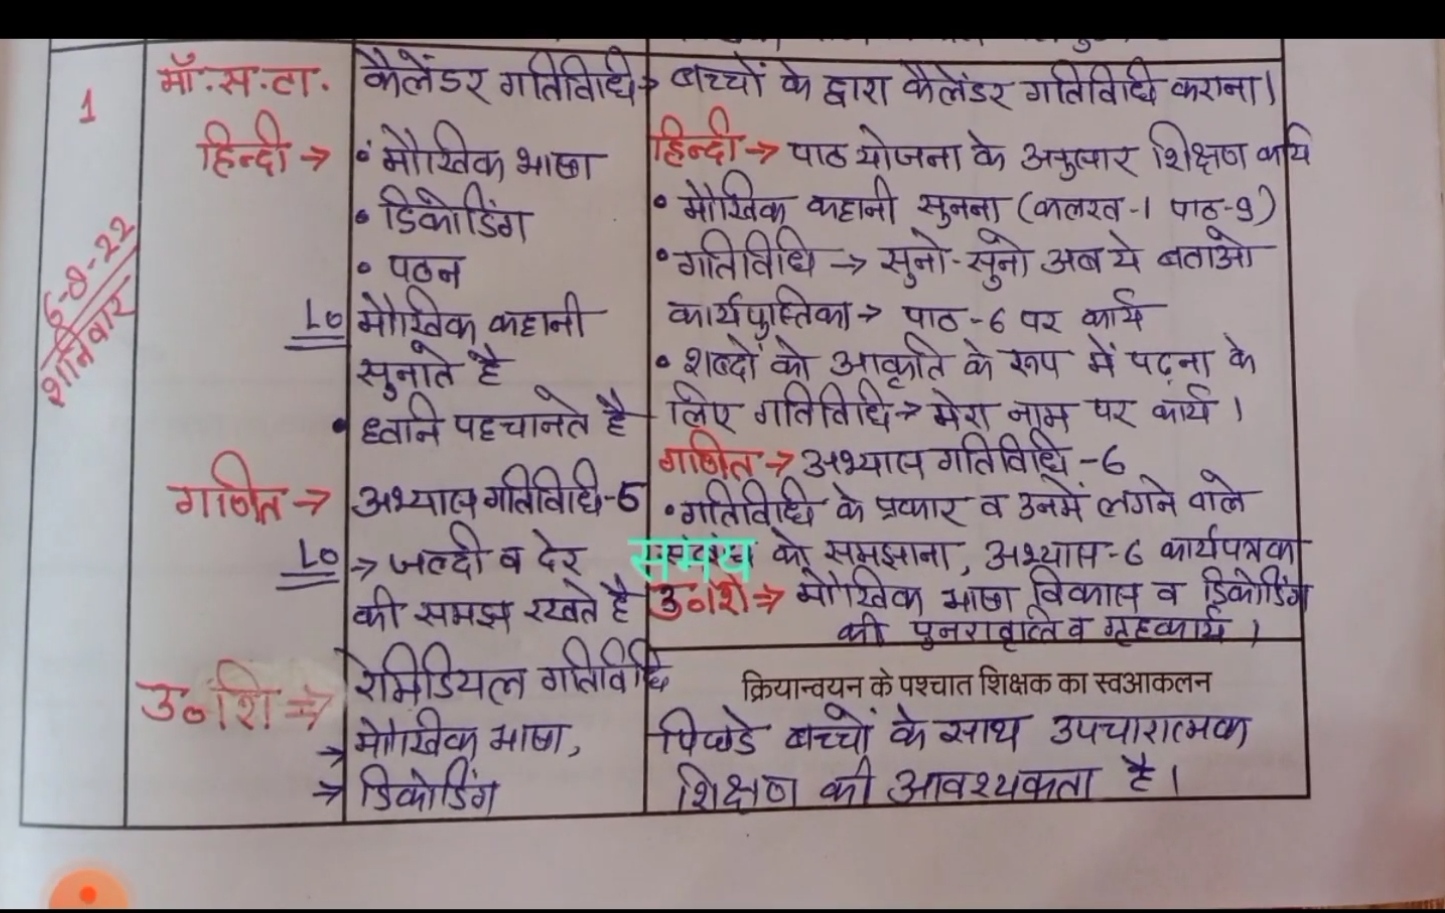 1
6-8-22
शनिवार
मॉ.स.टा.
कैलेंडर गतिविधि→
बच्चों के द्वारा कैलेंडर गतिविधि कराना।
हिन्दी →
• मौखिक भाषा
• डिकोडिंग
• पठन
LO
मौखिक कहानी
सुनाते है
• ध्वनि पहचानते है
हिन्दी → पाठ योजना के अनुसार शिक्षण कार्य
• मौखिक कहानी सुनना (कलरव-1 पाठ-9)
• गतिविधि → सुनो-सुनो अब ये बताओ
कार्यपुस्तिका → पाठ-6 पर कार्य
• शब्दों को आकृति के रूप में पढ़ना के
लिए गतितिधि→ मेरा नाम पर कार्य।
गणित →
अभ्यास गतिविधि-5
LO
→ जल्दी व देर
की समझ रखते है
गणित → अभ्यास गतिविधि-6
• गतिविधि के प्रकार व उनमें लगने वाले
समय
को समझाना, अभ्यास-6 कार्यपत्रक
उ०शि ⇒ मौखिक भाषा विकास व डिकोडिंग
की पुनरावृत्ति व गृहकार्य।
उ०शि ⇒
रेमिडियल गतिविधि
→ मौखिक भाषा,
→ डिकोडिंग
क्रियान्वयन के पश्चात शिक्षक का स्वआकलन
पिछडे बच्चों के साथ उपचारात्मक
शिक्षण की आवश्यकता है।